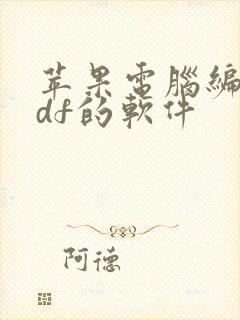 苹果電腦編
df的軟件
阿德